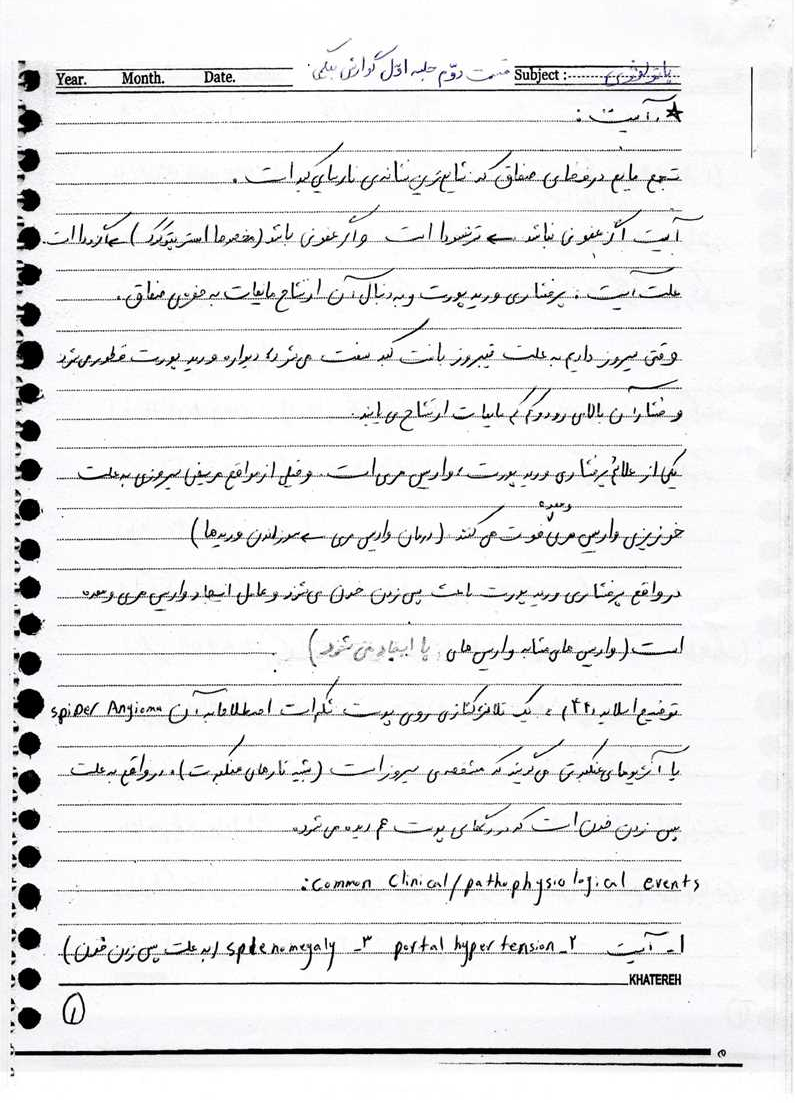 Year. Month. Date. Subject: پاتولوژی قسمت دوّم جلسه اوّل گوارش
★ آسیت :
تجمع مایع در فضای صفاق که شایع‌ترین نشانه‌ی نارسایی کبد است .
آسیت اگر عفونی نباشد ← ترانسودا است و اگر عفونی باشد (مخصوصا استرپتوکوک) ← اگزودا است.
علت آسیت : پرفشاری ورید پورت و به دنبال آن ارتشاح مایعات به حفره‌ی صفاق .
وقتی سیروز داریم به علت فیبروز بافت کبد سفت می‌شود، دیواره ورید پورت قطور می‌شود
و فشار آن بالا می رود و کم کم مایعات ارتشاح می یابند.
یکی از علائم پرفشاری ورید پورت، واریس مری است. و خیلی از مواقع مریض سیروزی به علت
خونریزی واریس مری و معده فوت می کند (درمان واریس مری ← سوزاندن وریدها)
در واقع پرفشاری ورید پورت باعث پس زدن خون می‌شود و عامل ایجاد واریس مری و معده
است (واریس های مشابه واریس های پا ایجاد می شود)
توضیح اسلاید (۴۲) : یک تلانژکتازی روی پوست شکم است اصطلاحا به آن spider Angioma
یا آنژیومای عنکبوتی می‌گویند که مشخصه‌ی سیروز است (شبیه تارهای عنکبوت). در واقع به علت
پس زدن خون است که در رگهای پوست هم دیده می شود.
common clinical/pathophysiological events:
۱- آسیت ۲- portal hypertension ۳- splenomegaly (به علت پس زدن خون)
KHATEREH
۱